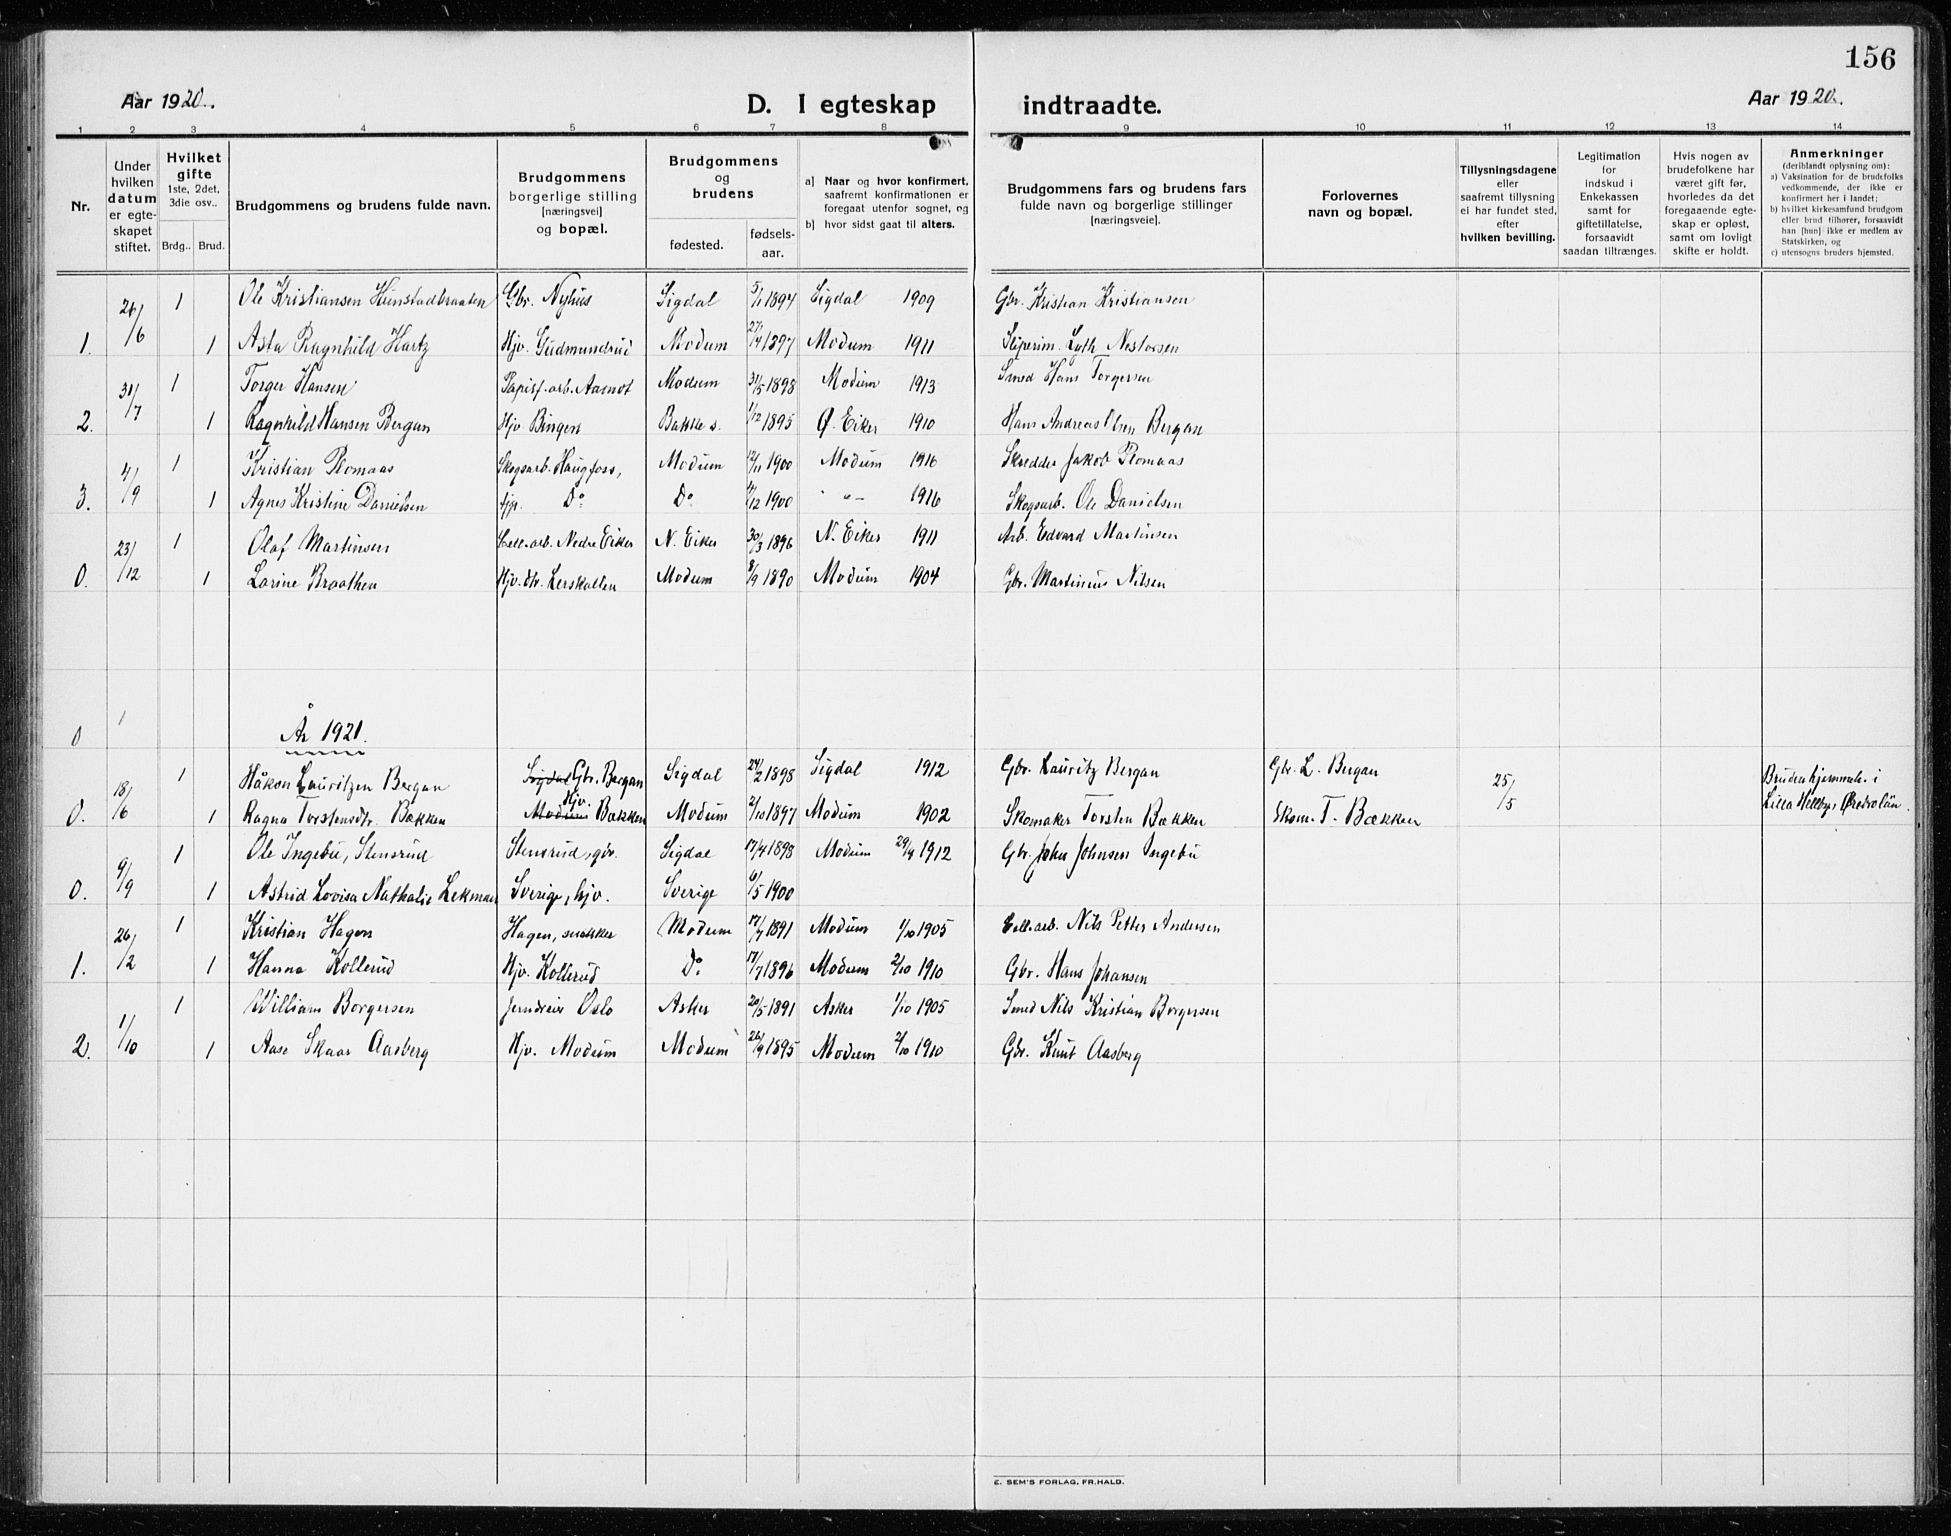 156
Aar 1920. D. I egteskap indtraadte. Aar 1920.
1 2 3 4 5 6 7 8 9 10 11 12 13 14
Nr.
Under
hvilken
datum
er egte-
skapet
stiftet.
Hvilket
gifte
1ste, 2det,
3die osv..
Brdg.. Brud.
Brudgommens og brudens fulde navn.
Brudgommens
borgerlige stilling
[næringsvei]
og bopæl.
Brudgommens
og
brudens
fødested.
fødsels-
aar.
a) Naar og hvor konfirmert,
saafremt konfirmationen er
foregaat utenfor sognet, og
b) hvor sidst gaat til alters.
Brudgommens fars og brudens fars
fulde navn og borgerlige stillinger
[næringsveie].
Forlovernes
navn og bopæl.
Tillysningsdagene
eller
saafremt tillysning
ei har fundet sted,
efter
hvilken bevilling.
Legitimation
for
indskud i
Enkekassen
samt for
giftetillatelse,
forsaavidt
saadan tiltrænges.
Hvis nogen av
brudefolkene har
været gift før,
hvorledes da det
foregaaende egte-
skap er opløst,
samt om lovligt
skifte er holdt.
Anmerkninger
(deriblandt oplysning om):
a) Vaksination for de brudefolks
vedkommende, der ikke er
konfirmert her i landet;
b) hvilket kirkesamfund brudgom
eller brud tilhører, forsaavidt
han [hun] ikke er medlem av
Statskirken, og
c) utensogns bruders hjemsted.
26/6 1 Ole Kristiansen Gbr. Nyhus Sigdal 5/1 1894 Sigdal 1909 Gbr. Kristian Kristiansen
1. 1 Asta Ragnhild Hartz Hjv. Gudmundrud Modum 27/4 1897 Modum 1911 Nestorsen
31/7 1 Torger Hansen Modum 31/5 1898 Modum 1913 Smed Hans Torgersen
2. 1 Ragnhild Hansen Bergan Hjv Bingen Bakke s. 1/12 1895 Ø. Eiker 1910 Hans Andreas Olsen Bergan
4/9 1 Kristian Plomaas Skogsarb. Haugfoss, Modum 12/11 1900 Modum 1916 Skredder Jakob Plomaas
3. 1 Agnes Kristine Danielsen Do Do 1900 " 1916 Skogsarb. Ole Danielsen
23/12 1 Olaf Martinsen Cell. arb. Nedre Eiker N. Eiker 30/3 1896 N. Eiker 1911 Arb. Edvard Martinsen
0. 1 Larine Braathen Hjv. dtr. Lerskallen Modum 8/9 1890 Modum 1904 Gbr. Martinius Nilsen
0 1 År 1921.
18/6 1 Håkon Lauritzen Bergan Sigdal Gbr. Bergan Sigdal 24/2 1898 Sigdal 1912 Gbr. Lauritz Bergan Gbr. L. Bergan 25/5 i
0. 1 Ragna Torstensdtr. Bækken Modum Hjv. Bækken Modum 2/10 1897 Modum 1902 Skomaker Torsten Bækken Skom. T. Bækken
9/9 1 Ole Ingebu, Stensrud Stensrud, gbr. Sigdal 17/4 1898 Modum 29/9 1912 Gbr. John Johnsen Ingebu
0. 1 Astrid Lovisa Nathalie Lekman Sverige, hjv. Sverige 6/5 1900
26/2 1 Kristian Hagen Hagen, snekker Modum 17/7 1891 Modum 1/10 1905 Cell. arb. Nils Petter Andersen
1. 1 Hanna Kollerud Hjv. Kollerud Do 17/7 1896 Modum 2/10 1910 Gbr. Hans Johansen
1/10 1 William Borgersen Jerndreier Oslo Asker 20/5 1891 Asker 1/10 1905 Smed Nils Kristian Borgersen
2. 1 Aase Skaar Aasberg Hjv. Modum Modum 26/9 1895 Modum 2/10 1910 Gbr. Knut Aasberg
E. SEM'S FORLAG, FR.HALD.